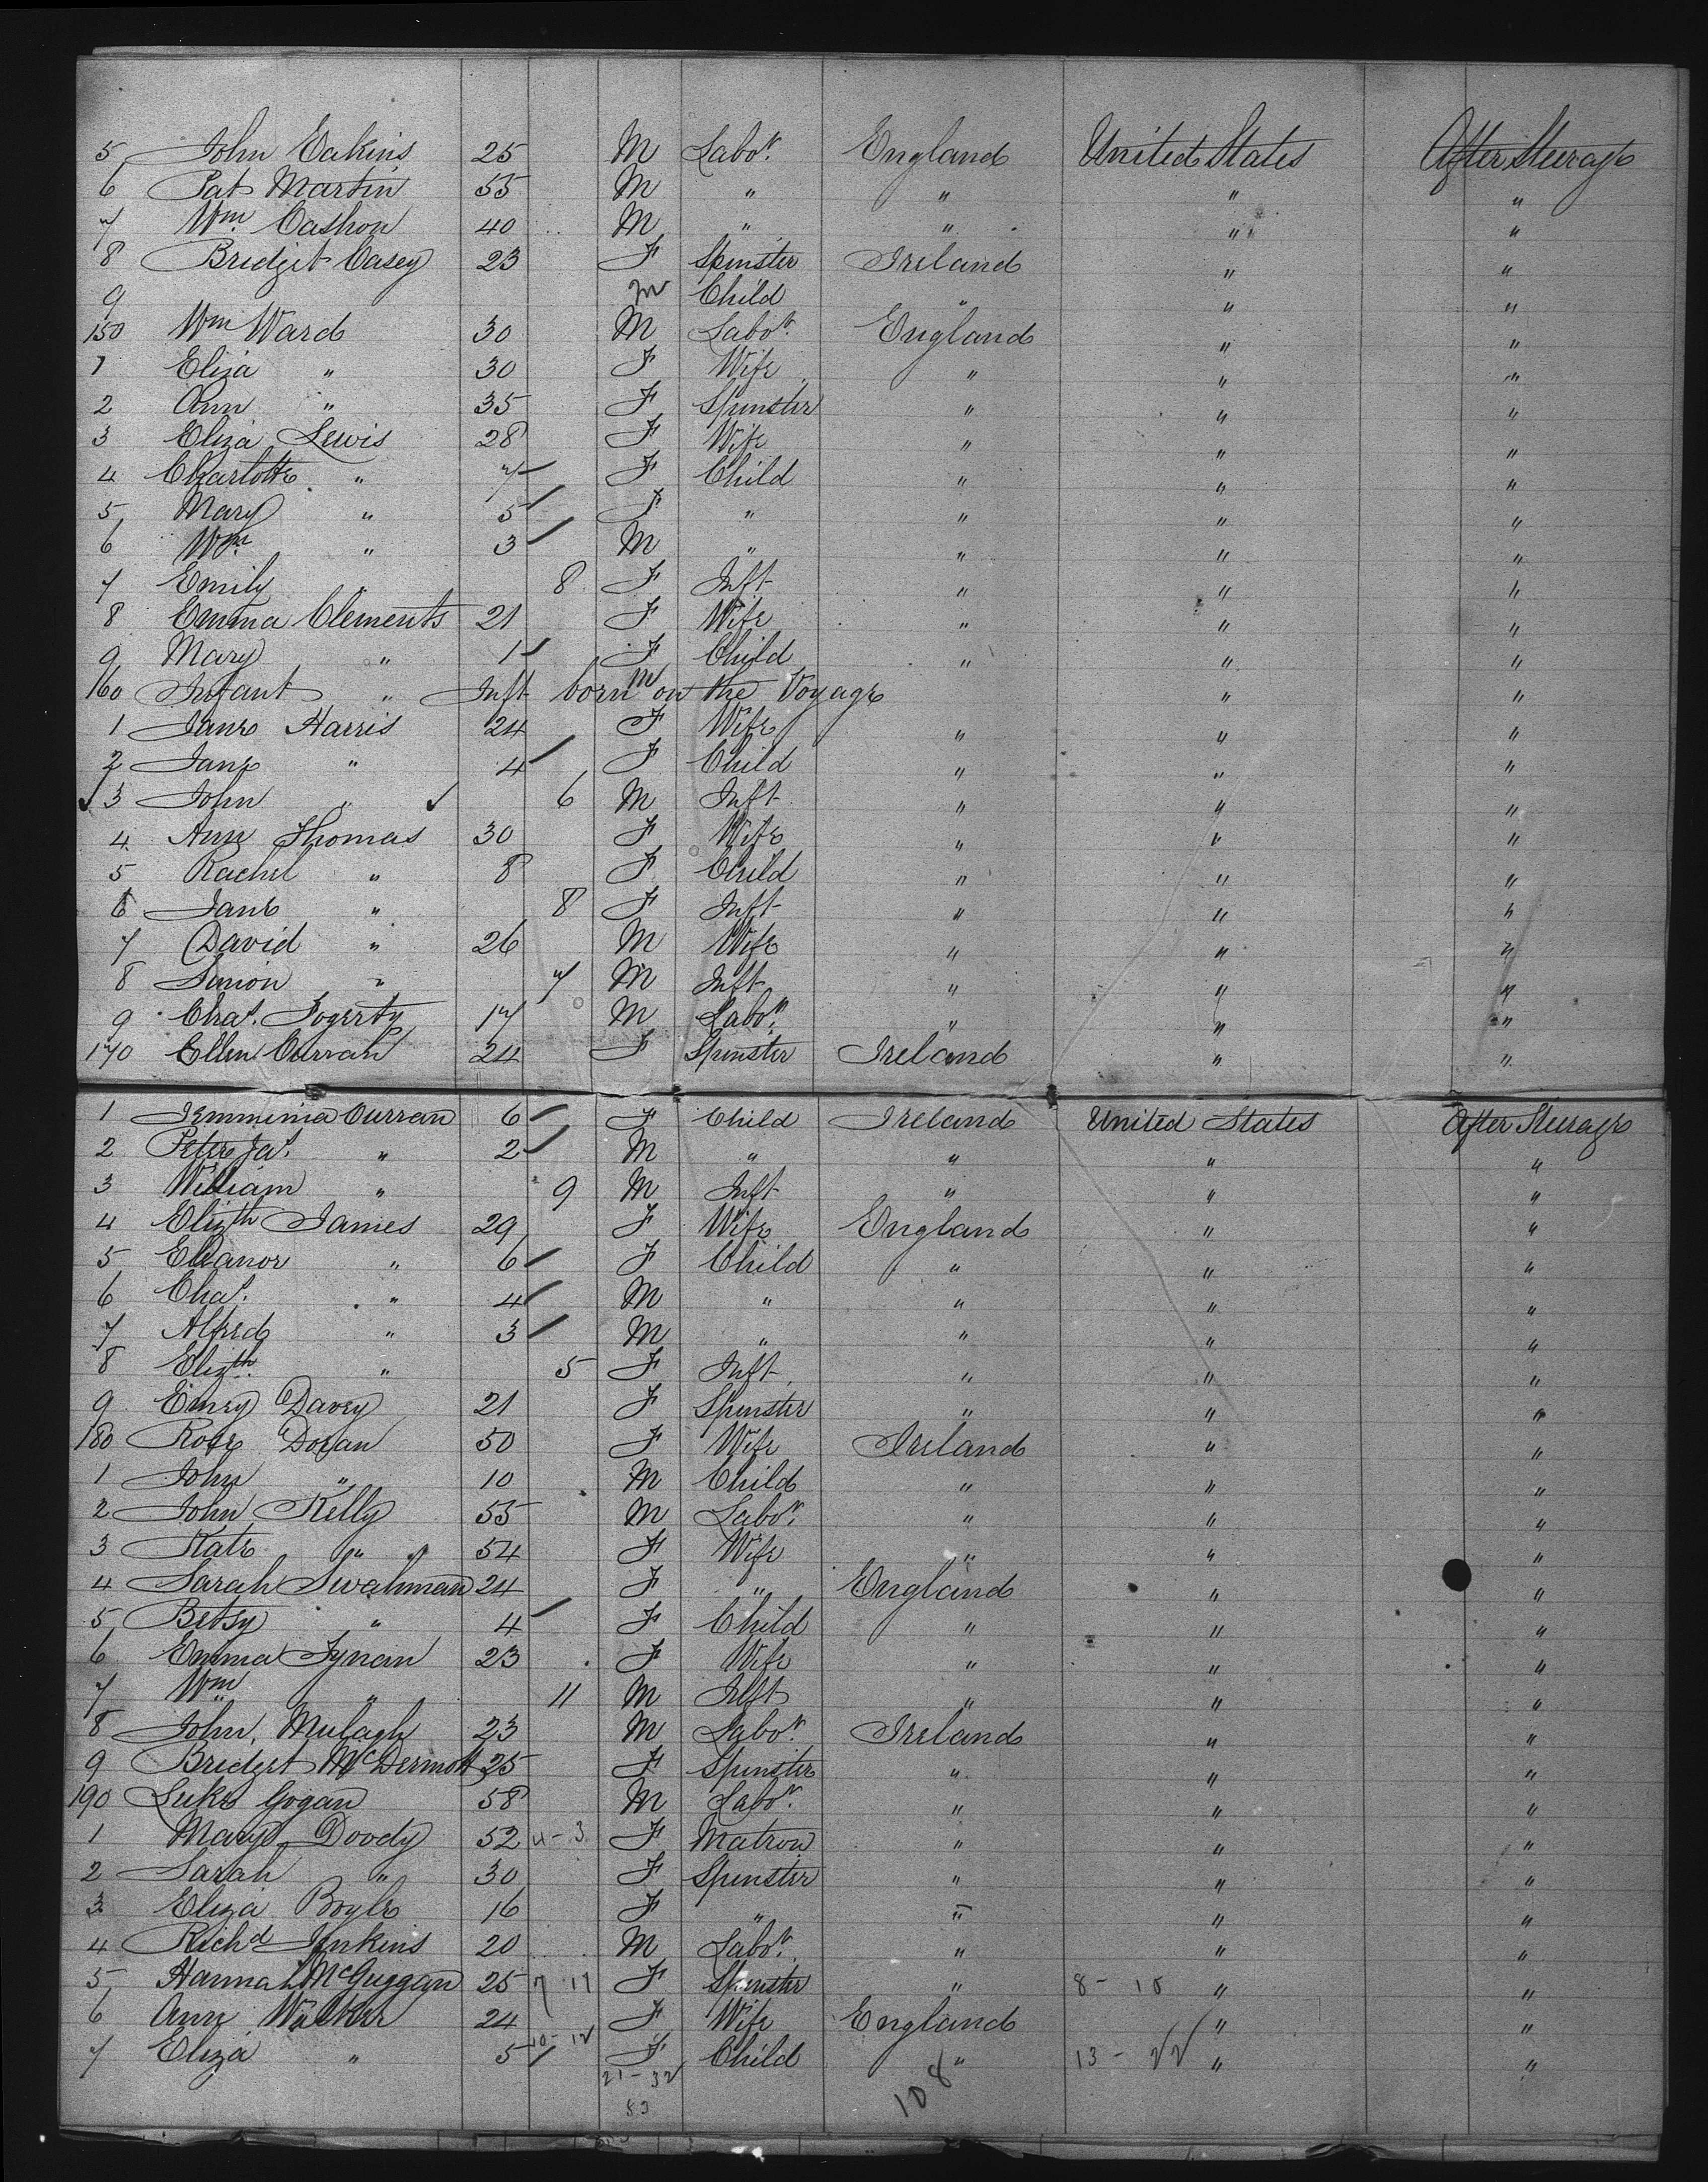 5 John Eakins 25 M Labor. England United States After Steerage
6 Pat Martin 55 M " " " "
7 Wm. Cashon 40 M " " " "
8 Bridget Casey 23 F Spinster Ireland " "
9 m Child " " "
150 Wm Ward 30 M Labor. England " "
1 Eliza " 30 F Wife " " "
2 Ann " 35 F Spinster " " "
3 Eliza Lewis 28 F Wife " " "
4 Charlotte " 7 F Child " " "
5 Mary " 5 F " " " "
6 Wm. " 3 M " " " "
7 Emily " 8 F Inft " " "
8 Emma Clements 21 F Wife " " "
9 Mary " 1 F Child " " "
160 Infant " Inft born m on the Voyage " "
1 Jane Harris 24 F Wife " " "
2 Jane " 4 F Child " " "
✓ 3 John " ✓ 6 M Inft " " "
4 Ann Thomas 30 F Wife " " "
5 Rachel " 8 F Child " " "
6 Jane " 8 F Inft " " "
7 David " 26 M Wife " " "
8 Simon " 7 M Inft " " "
9 Chas. Fogerty 17 M Labor. " " "
170 Ellen Curran 24 F Spinster Ireland " "
1 Jemminia Curran 6 F Child Ireland United States After Steerage
2 Peter Jas. " 2 M " " " "
3 William " 9 M Inft " " "
4 Elizth James 29 F Wife England " "
5 Eleanor " 6 F Child " " "
6 Chas. " 4 M " " " "
7 Alfred " 3 M " " " "
8 Elizth. " 5 F Inft " " "
9 Davey 21 F Spinster " " "
180 Rose Doran 50 F Wife Ireland " "
1 John " 10 M Child " " "
2 John Kelly 55 M Labor. " " "
3 Kate " 54 F Wife " " "
4 Sarah 24 F " England " "
5 Betsy " 4 F Child " " "
6 Emma Tynan 23 F Wife " " "
7 Wm " 11 M Inft " " "
8 John Mulagh 23 M Labor. Ireland " "
9 Bridget McDermott 25 F Spinster " " "
190 Luke Gogan 58 M Labor. " " "
1 Mary Doody 52 4-3 F Matron " " "
2 Sarah " 30 F Spinster " " "
3 Eliza Boyle 16 F " " " "
4 Richd Jenkins 20 M Labor. " " "
5 Hannah McGuggan 25 7 11 F Spinster " 8-10 " "
6 Ann Walker 24 F Wife England " "
7 Eliza " 5 10-12 F Child " 13-22 " "
21-32
83
108